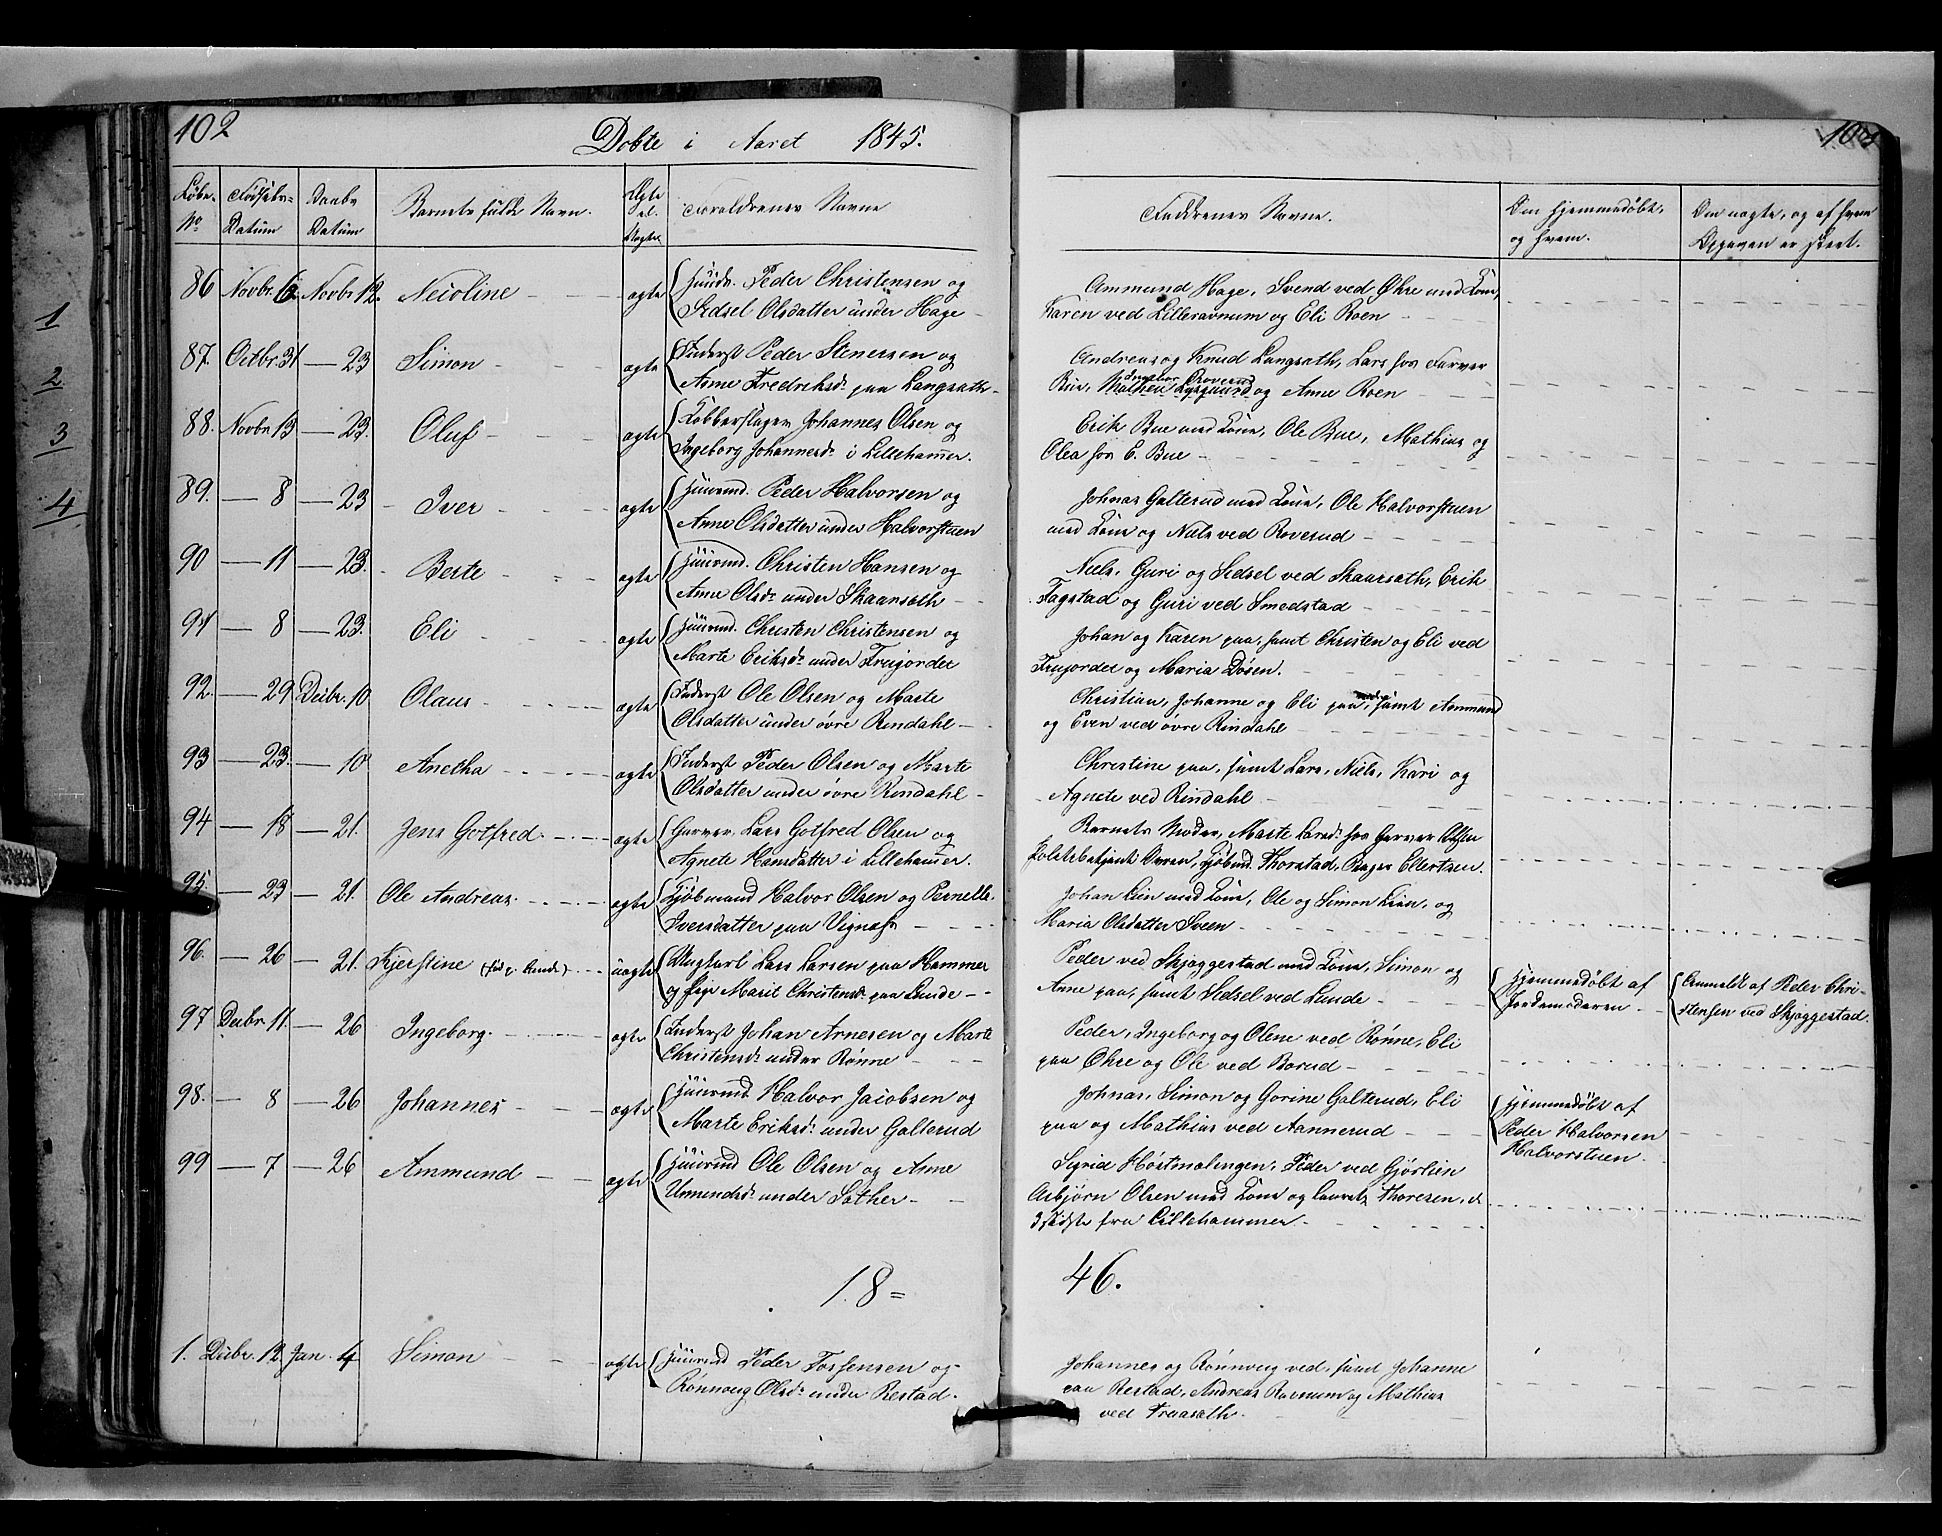 102
Døbte i Aaret 1845.
103
Løbe- No
Fødsels- Datum
Daabs Datum
Barnets fulde Navn.
Ægte el. Uægte
Forældrenes Navne
Faddrenes Navne.
Om hjemmedøbt, og hvem.
Om uægte, og af hvem Opgaven er skeet.
1
2
3
4
86 Novbr. 6. Novbr 12. Neioline ægte Huusm. Peder Christensen og
Sidsel Olsdatter under Hage
Ammund Hage, Svend ved Øhre med Kone,
Karen ved Lilleravnum og Eli Roen
87. Octbr. 31 — 23 Simon ægte Inderst Peder Stenersen og
Anne Fredriksdr paa Langsæth
Andreas og Knud Langsæth, Lars hos Farver
Bue, og Anne Roen
88. Novbr 13 — 23. Oluf ægte Kobberslager Johannes Olsen og
Ingeborg Johannesdr i Lillehamer.
Erik Bue med Kone, Ole Bue, Mathias og
Olea hos E. Bue
89. — 8 — 23 Iver ægte Huusmd. Peder Halvorsen og
Anne Olsdatter under Halvorstuen
Johnas Galterud med Kone, Ole Halvorstuen
med Kone og Niels ved Roverud
90 — 11 — 23. Berte ægte Huusmd. Christen Hansen og
Anne Olsdr under Skaarsæth
Niels, Guri og Sidsel ved Skaarsæth, Erik
Fagstad og Guri ved Smedstad
91 — 8 — 23. Eli ægte Huusmd. Christen Christensen og
Marte Eriksdr under Frugordet
Johan og Karen paa, samt Christen og Eli ved
Frugordet og Maria Døsen.
92. — 29. Decbr. 10 Olaus ægte Inderst Ole Olsen og Marte
Olsdatter under øvre Rindahl
Christian, Johanne og Eli paa, samt Ammund
og Even ved øvre Rindahl
93 — 23. — 10 Anetha ægte Inderst Peder Olsen og Marte
Olsdatter under øvre Rindahl
Christine paa, samt Lars, Niels, Kari og
Agnete ved Rindahl
94 — 18 — 21. Jens Gotfred ægte Garver Lars Gotfred Olsen og
Agnete Hansdatter i Lillehamer.
Barnets Moder, Marte Larsdr hos Garver Olsen
Politiebetjent Kjøbmd. Thorstad, Eilertsen.
95. — 23 — 21. Ole Andreas ægte Kjøbmand Halvor Olsen og Pernelle
Iversdatter paa Vignæs
Johan Lien med Kone, Ole og Simon Lien, og
Maria Olsdatter Sveen
96. — 26 — 21. Kjerstine uægte Ungkarl Lars Larsen paa Hammer
og Pige Marit Christensdr paa Lunde
Peder ved Skjæggestad med Kone, Simon og
Anne paa, samt Sidsel ved Lunde
Hjemmedøbt af
Jordemoderen
Anmeldt af Peder Chri-
stensen ved Skjæggestad.
97 Decbr 11. — 26 Ingeborg. ægte Inderst Johan Arnesen og Marte
Christensdr under Rønne
Peder, Ingeborg og Olene ved Rønne, Eli
paa Øhre og Ole ved Borud
98. — 8 — 26 Johannes ægte Huusmd Halvor Jacobsen og
Marte Eriksdr under Galterud
Johnas, Simon og Gorine Galterud, Eli
paa og Mathias ved Aannerud
Hjemmedøbt af
Peder Halvorsen
Halvorstuen.
99 — 7 — 26 Ammund ægte Huusmd Ole Olsen og Anne
Ummundsdr under Sother
Sigrid Høstmælingen, Peder ved Gjørlien
Asbjørn Olsen med Kone og Lauretz Thoresen, d
3 sidste fra Lillehammer
18 =
46.
1. Decbr. 12 Jan. 4 Simon ægte Huusmd Peder Torstensen og
Rønnoug Olsdr under Restad.
Johannes og Rønnoug ved, samt Johanne
paa Restad, Andreas Ravnum og Mathias
ved Truasæth.